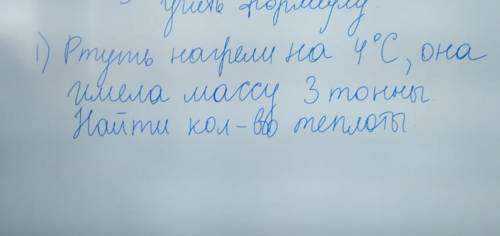 учить формулу
1) Ртуть нагрели на 4°С, она
имела массу 3 тонны
Найти кол-во теплоты